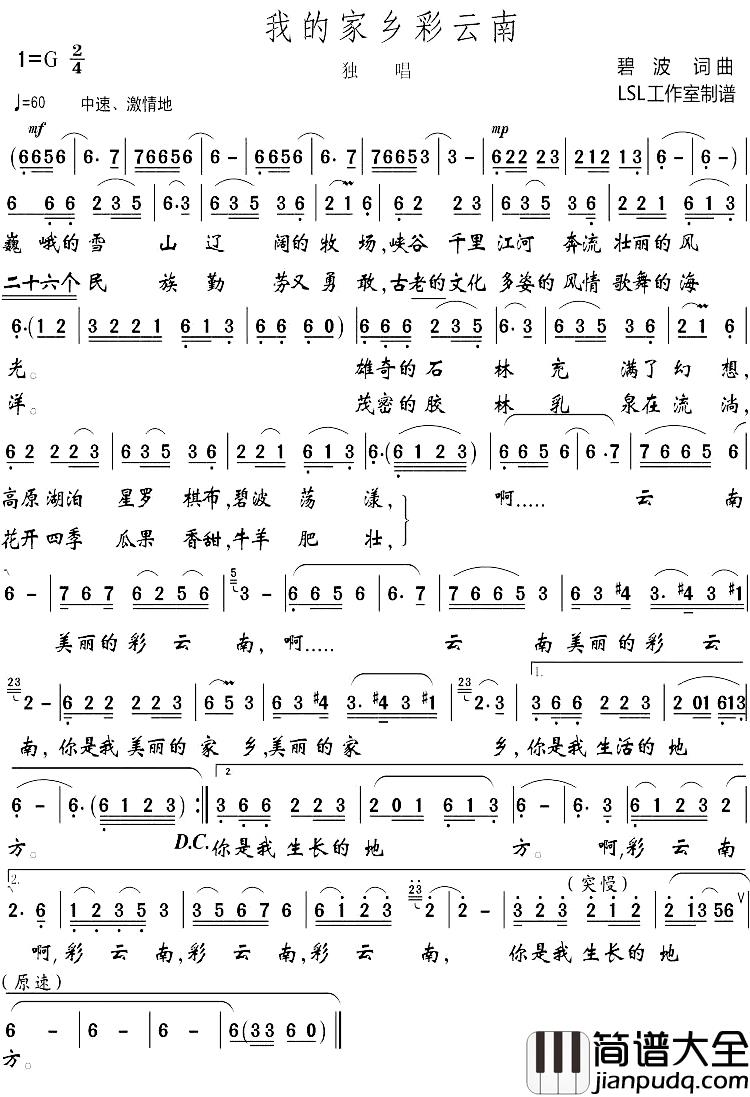 我的家乡彩云南
1=G 2/4
独 唱
碧 波 词曲
LSL工作室制谱
♩=60 中速、激情地
mf mp
(6656 6·7 76656 6- 6656 6·7 766653 3- 622 23 212 13 6- 6-)
6 66 235 6·3 635 36 216 62 23 635 221 613
巍 峨的雪 山 辽 阔的牧 场,峡谷 千里 江河 奔流 壮丽的风
二十六个民 族 勤 劳又 勇 敢,古老的文化 多姿的 风情 歌舞的海
6·(12 3221 613 66 60) 666 235 6·3 635 36 21 6
光。 雄奇的石 林 充 满了 幻 想,
洋。 茂密的胶 林 乳 泉在 流 淌,
62 223 635 36 221 613 6·(6123) 6656 6·7 7665 6
高原 湖泊 星罗 棋布,碧波 荡 漾, 啊..... 云 南
花开 四季 瓜果 香甜,牛羊 肥 壮,
6- 767 6256 5 3- 6656 6·7 6665 6 63#4 3·#43#1
美丽的 彩 云 南, 啊..... 云 南 美丽的 彩 云
23 2- 622 223 653 63#4 3·#43#1 23 2·3 1. 366 222 201 613
南, 你是我 美丽的 家 乡,美丽的 家 乡, 你是我 生活的 地
6- 6·(6123) 2 366 223 201 613 6- 6·3 6123 226
方。 D.C. 你是我 生长的 地 方。 啊,彩 云 南
2. 2·6 1235 3567 6 6123 23 2 2- 323 212 (突慢) 21356 V
啊,彩 云 南,彩 云 南,彩 云 南, 你是我 生长的 地
(原速)
6- 6- 6- 6(33 60)
方。
简谱大全
jianpudq.com